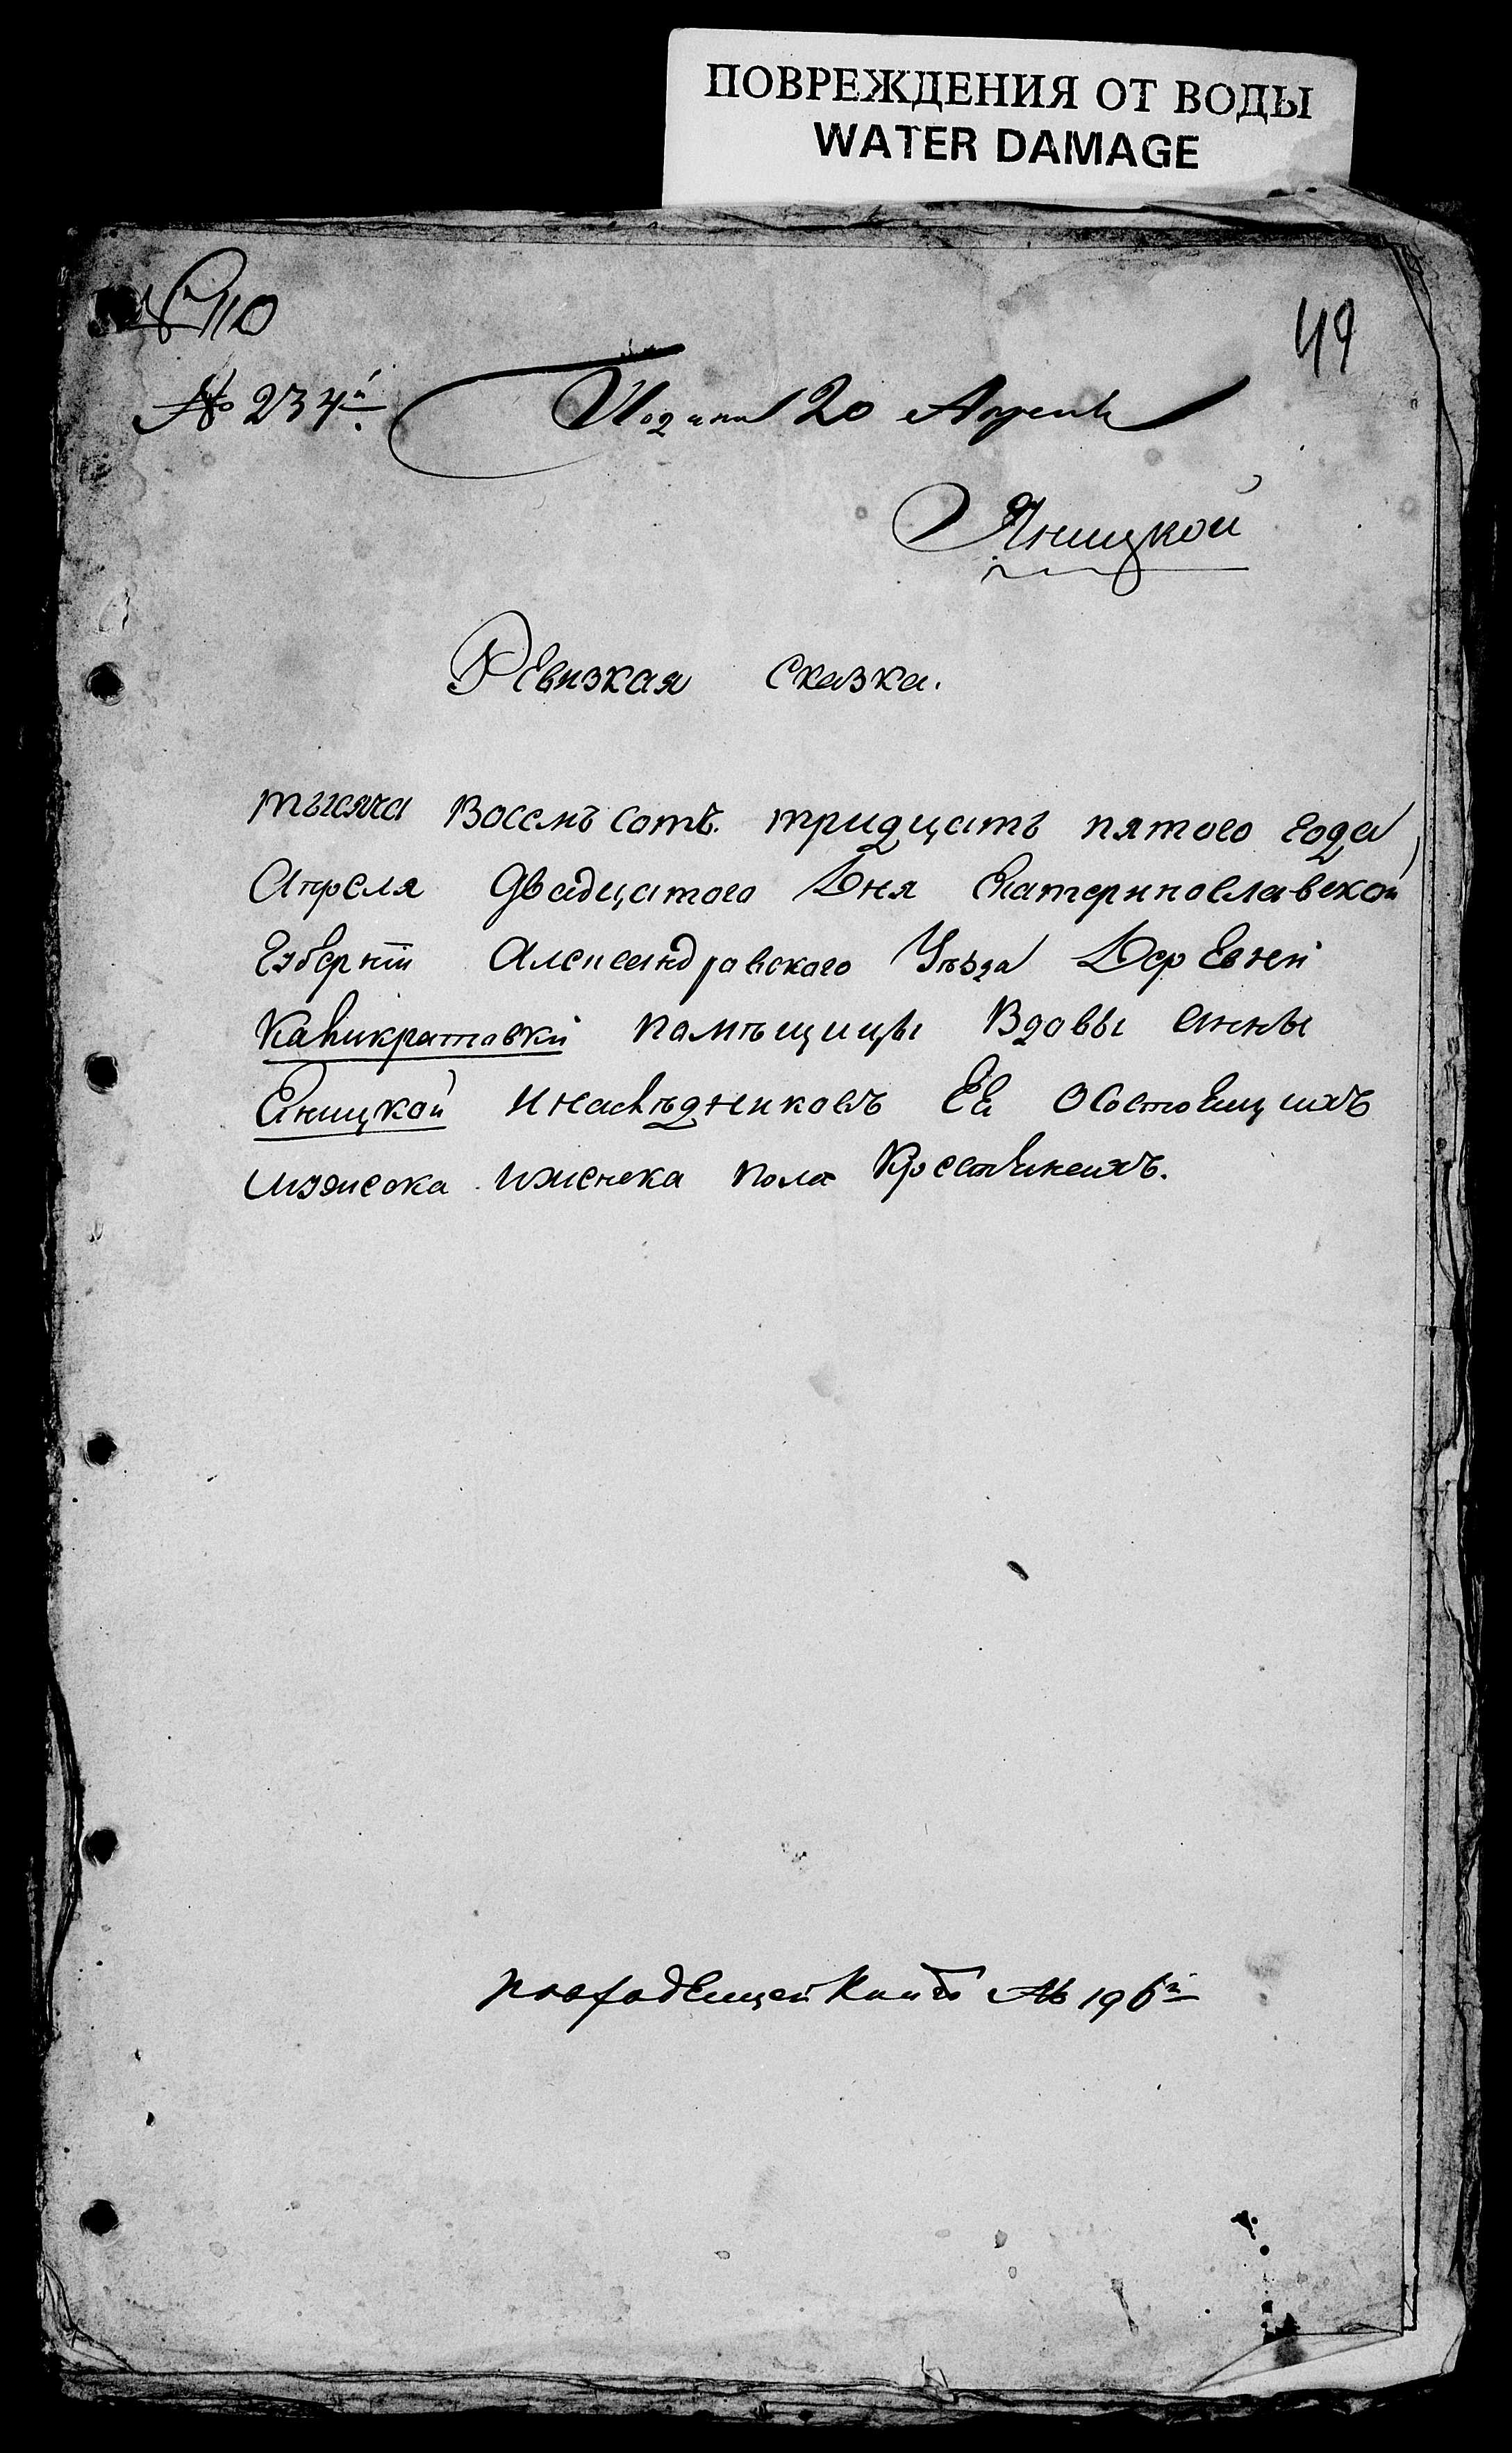 ПОВРЕЖДЕНИЯ ОТ ВОДЫ
WATER DAMAGE
№ 110
49
№ 234й
Подана 20 Апреля
Яницкой
Ревизкая сказка.
тысяча восемъ сотъ тридцать пятого года
Апреля двадцатого Дня Екатеринославской
Губерніи Александровского Уѣзда Деревней
Каликратовки помѣщицы Вдовы Анны
Яницкой инаслѣдниковъ Ея осостоящихъ
мужеска иженска пола Крестьянехъ.
повходящей Книге № 196й